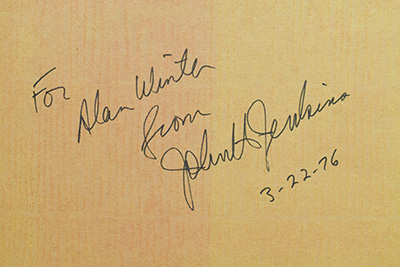 For
Alan Winter
from
John H Jenkins
3-22-76